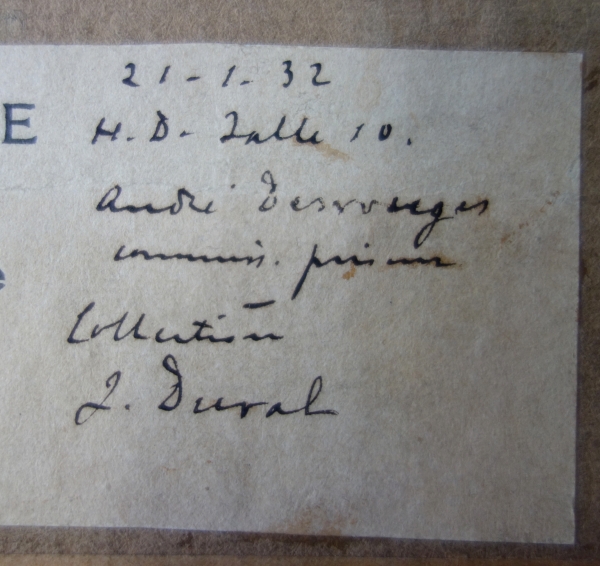 21-1-32
E
H. D. Salle 10.
André Desvouges
commiss. priseur
e
Collection
J. Duval